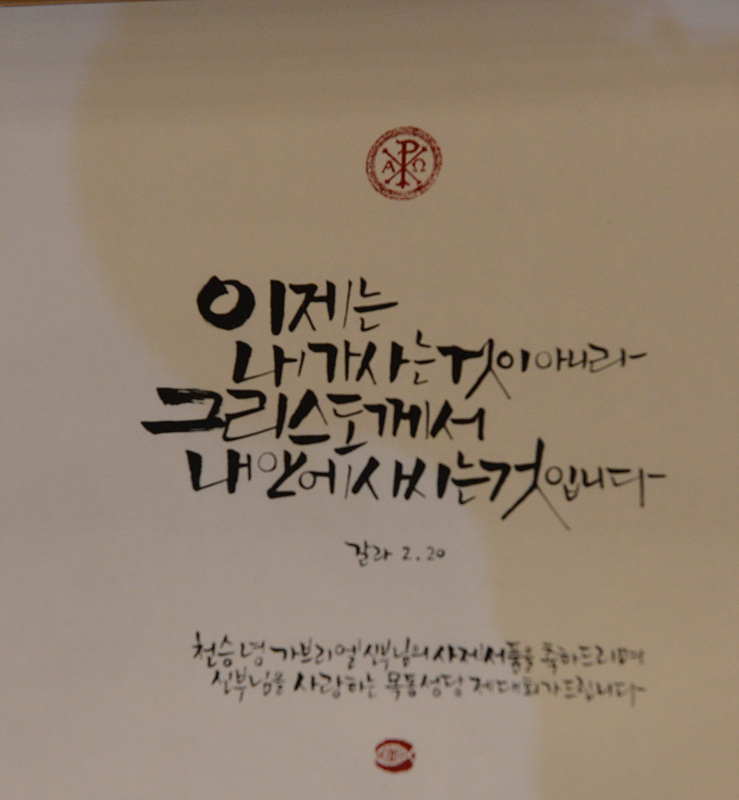 Α Ρ Ω
이제는
내가 사는 것이 아니라
그리스도께서
내 안에 사시는 것입니다
갈라 2.20
천승녕 가브리엘 신부님의 사제서품을 축하드리며
신부님을 사랑하는 목동성당 제대회가 드립니다